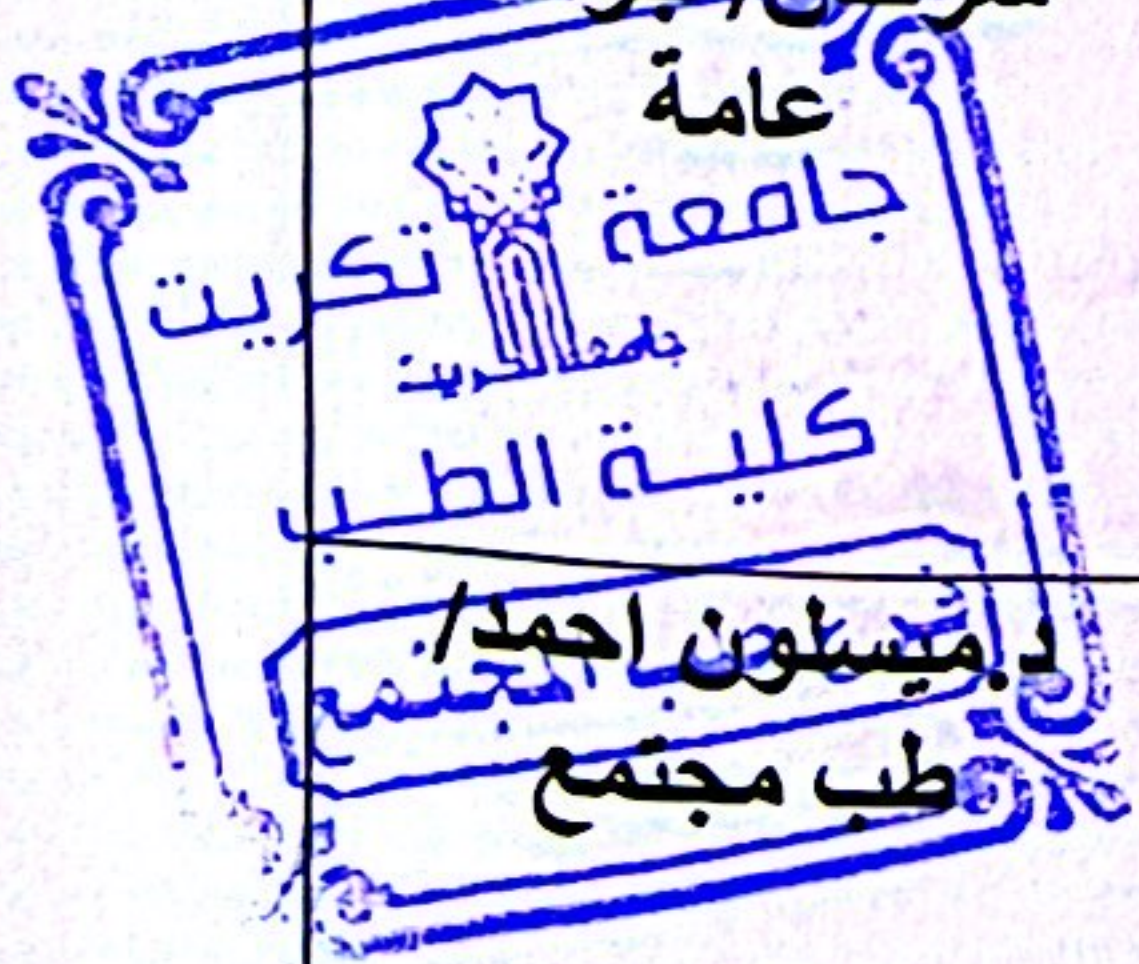 عامة
جامعة تكريت
جامعة تكريت
كلية الطب
د. ميسلون احمد/
طب مجتمع